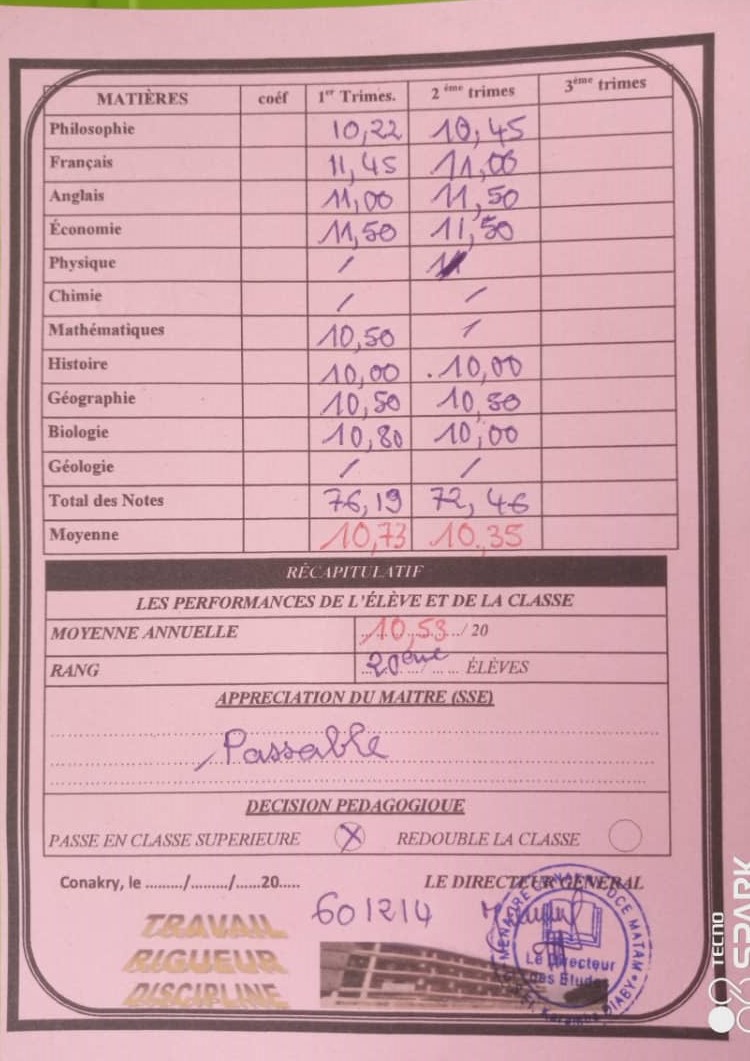 MATIÈRES coéf 1er Trimes. 2 ème trimes 3ème trimes
Philosophie 10,22 10,45
Français 11,45 11,00
Anglais 11,00 11,50
Économie 11,50 11,50
Physique /
Chimie / /
Mathématiques 10,50 /
Histoire 10,00 10,00
Géographie 10,50 10,50
Biologie 10,80 10,00
Géologie / /
Total des Notes 76,19 72,46
Moyenne 10,73 10.35
RÉCAPITULATIF
LES PERFORMANCES DE L'ÉLÈVE ET DE LA CLASSE
MOYENNE ANNUELLE 10,53 / 20
RANG 20ème ÉLÈVES
APPRECIATION DU MAITRE (SSE)
Passable
DECISION PEDAGOGIQUE
PASSE EN CLASSE SUPERIEURE X REDOUBLE LA CLASSE
Conakry, le ........./........./......20..... LE DIRECTEUR GENERAL
601214
TRAVAIL
RIGUEUR
DISCIPLINE
Le Directeur
des Etudes
MATAM
DIABY
TECNO
SPARK